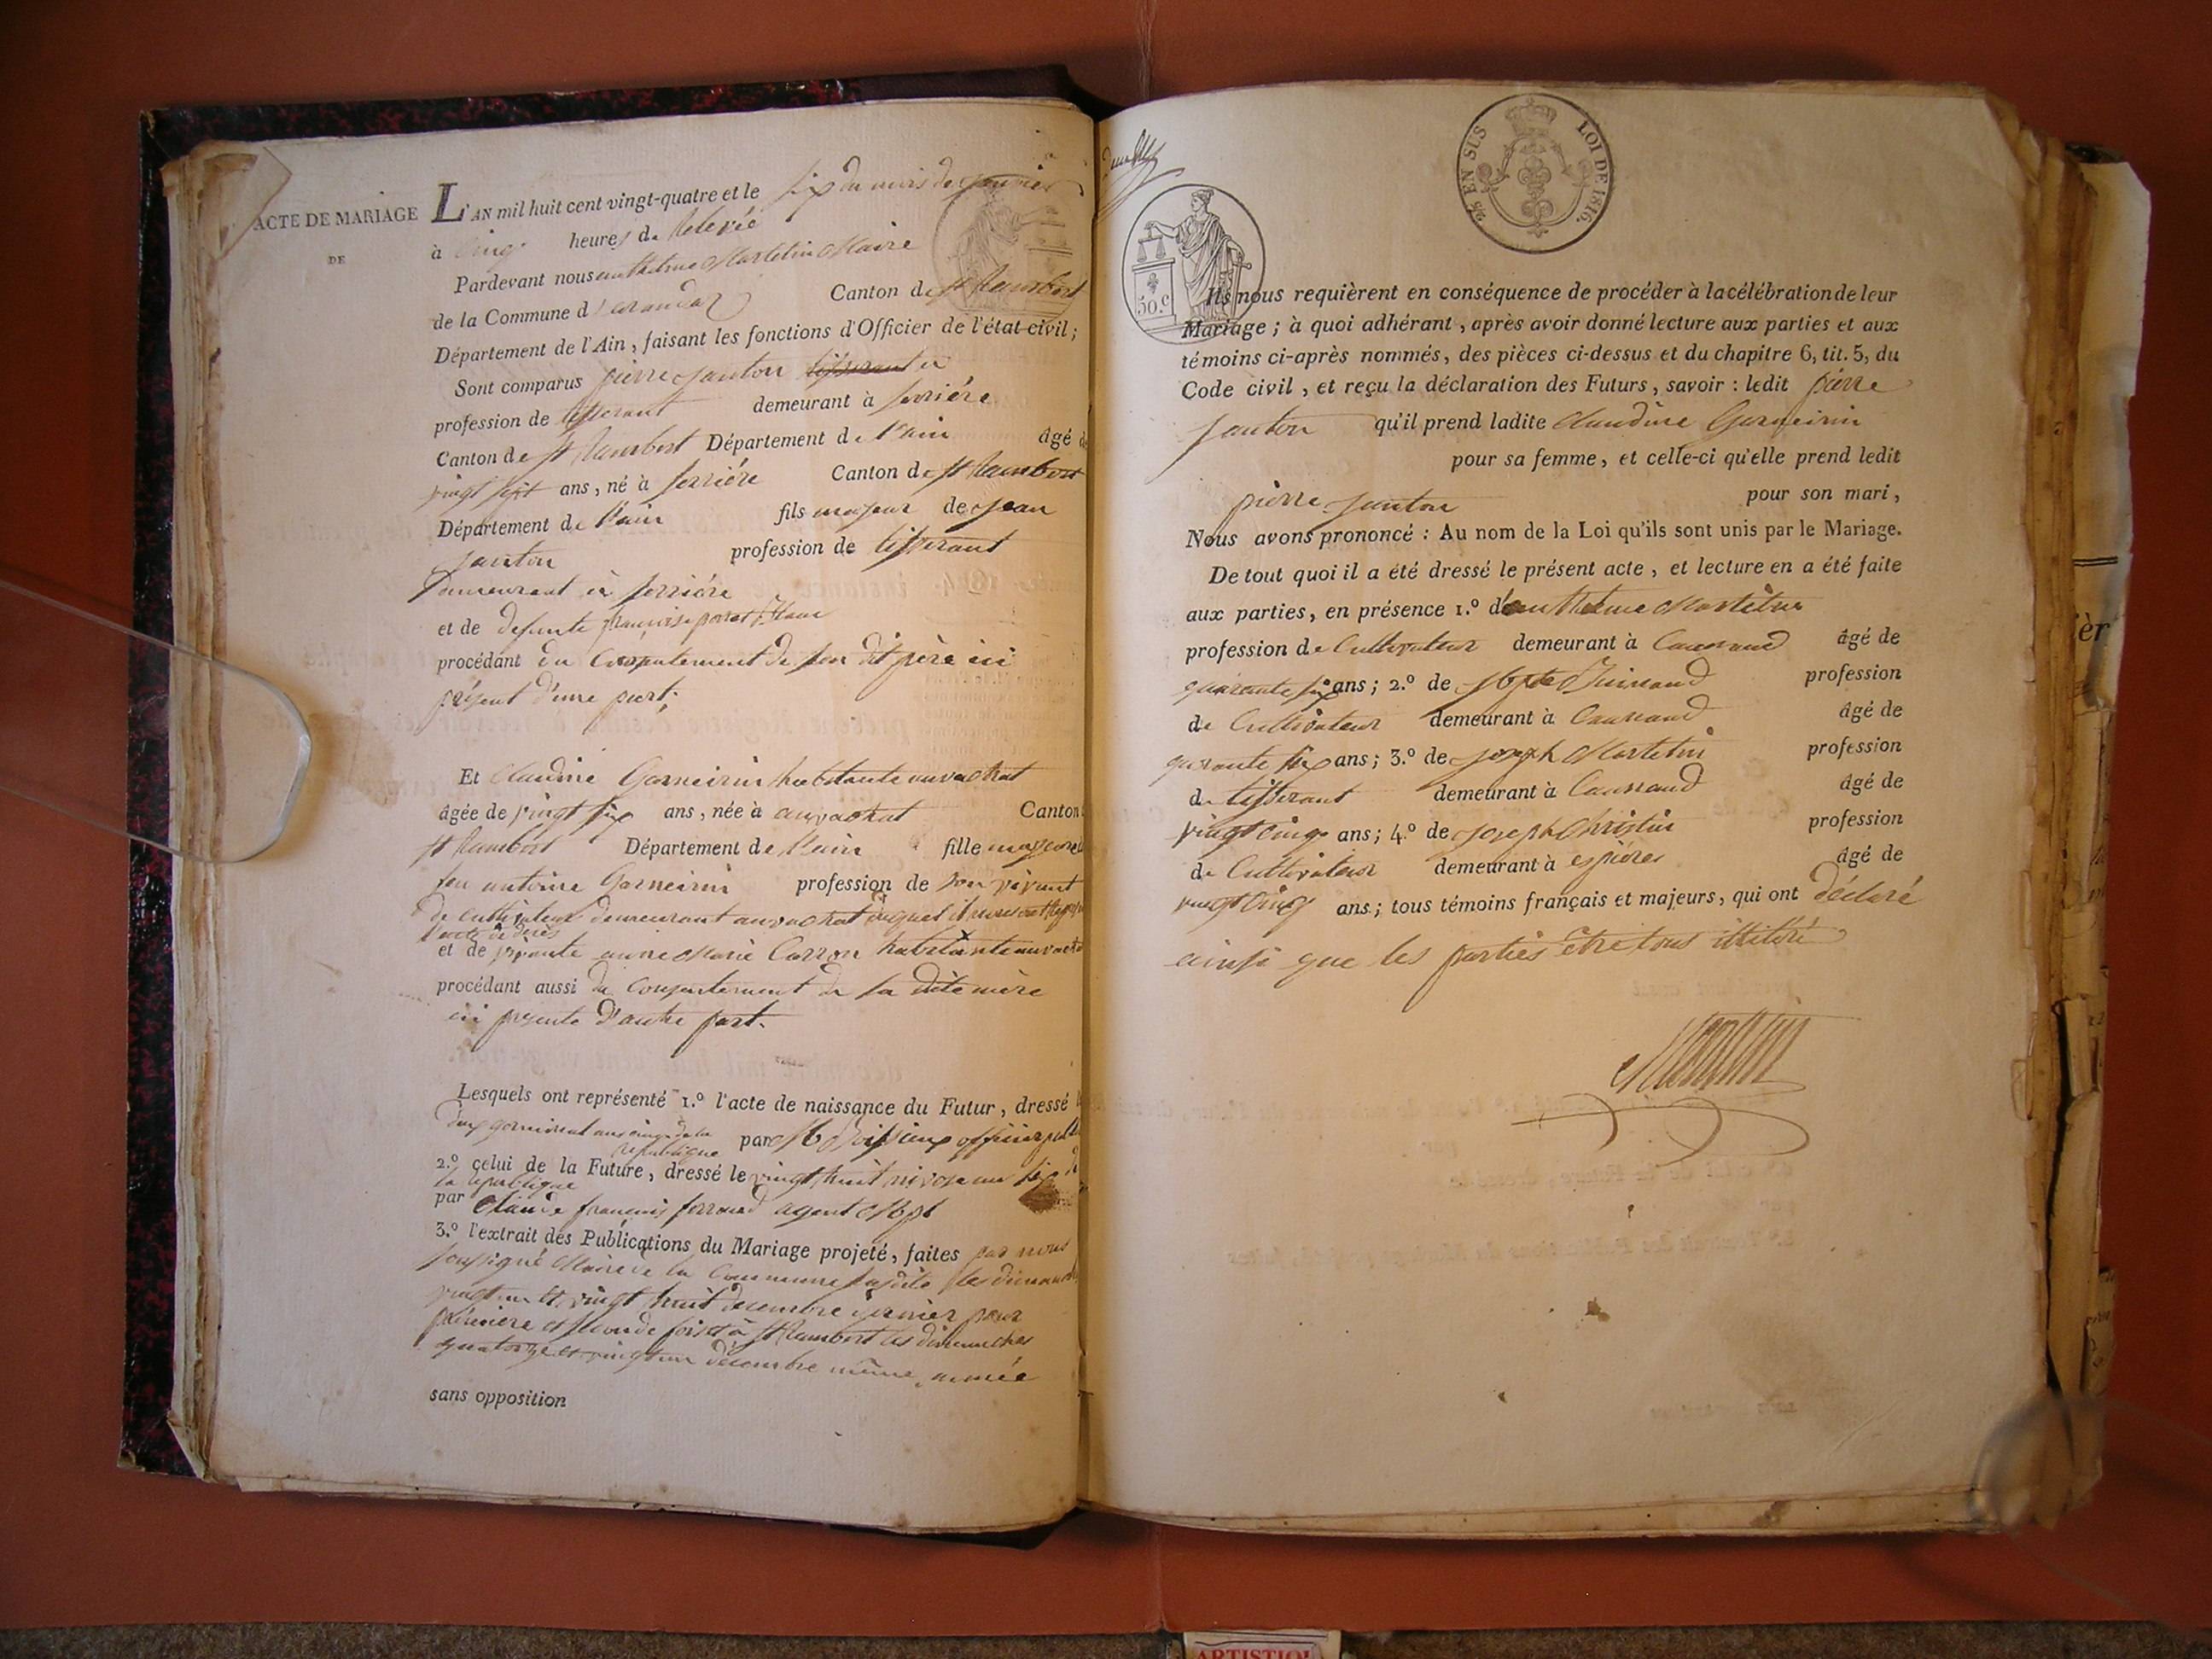 ACTE DE MARIAGE
DE
L'AN mil huit cent vingt-quatre et le six du mois de janvier
à cinq heures de Relevée
Pardevant nous anthelme Martelin Maire
de la Commune d'arandaz Canton de st Rambert
Département de l'Ain, faisant les fonctions d'Officier de l'état civil;
Sont comparus pierre janton tisserant
profession de tisserant demeurant à
Canton de st Rambert Département de l'ain âgé de
vingt sept ans, né à Canton de st Rambert
Département de l'ain fils majeur de jean
janton profession de tisserant
demeurant à
et de defunte françoise
procédant du Consentement de son dit père ici
présent d'une part;
Et Claudine Garneirin habitante
âgée de vingt six ans, née à Canton
st Rambert Département de l'ain fille majeure
feu antoine Garneirin profession de son vivant
de cultivateur demeurant duquel il nous ont
l'acte de décès
et de vivante anne Marie Carron habitante
procédant aussi du Consentement de sa dite mère
ici presente d'autre part.
Lesquels ont représenté 1.º l'acte de naissance du Futur, dressé
germinal an cinq de la
république par officier
2.º celui de la Future, dressé le vingt huit nivose an six de
la république
par Claude françois ferrand agent
3.º l'extrait des Publications du Mariage projeté, faites par nous
soussigné Maire de la Commune susdite les dimanches
vingt un et vingt huit decembre dernier pour
première et seconde fois et à st Rambert les dimanches
quatorze et vingt un décembre même année
sans opposition
25 EN SUS
LOI DE 1816.
50.c
Ils nous requièrent en conséquence de procéder à la célébration de leur
Mariage; à quoi adhérant, après avoir donné lecture aux parties et aux
témoins ci-après nommés, des pièces ci-dessus et du chapitre 6, tit. 5, du
Code civil, et reçu la déclaration des Futurs, savoir: ledit pierre
janton qu'il prend ladite Claudine Garneirin
pour sa femme, et celle-ci qu'elle prend ledit
pierre janton pour son mari,
Nous avons prononcé: Au nom de la Loi qu'ils sont unis par le Mariage.
De tout quoi il a été dressé le présent acte, et lecture en a été faite
aux parties, en présence 1.º d'anthelme Martelin
profession de Cultivateur demeurant à âgé de
quarante six ans; 2.º de profession
de Cultivateur demeurant à âgé de
quarante six ans; 3.º de joseph Martelin profession
de tisserant demeurant à âgé de
vingt cinq ans; 4.º de joseph Christin profession
de Cultivateur demeurant à âgé de
vingt cinq ans; tous témoins français et majeurs, qui ont déclaré
ainsi que les parties être tous illitéré
Martelin
ARTISTIQU